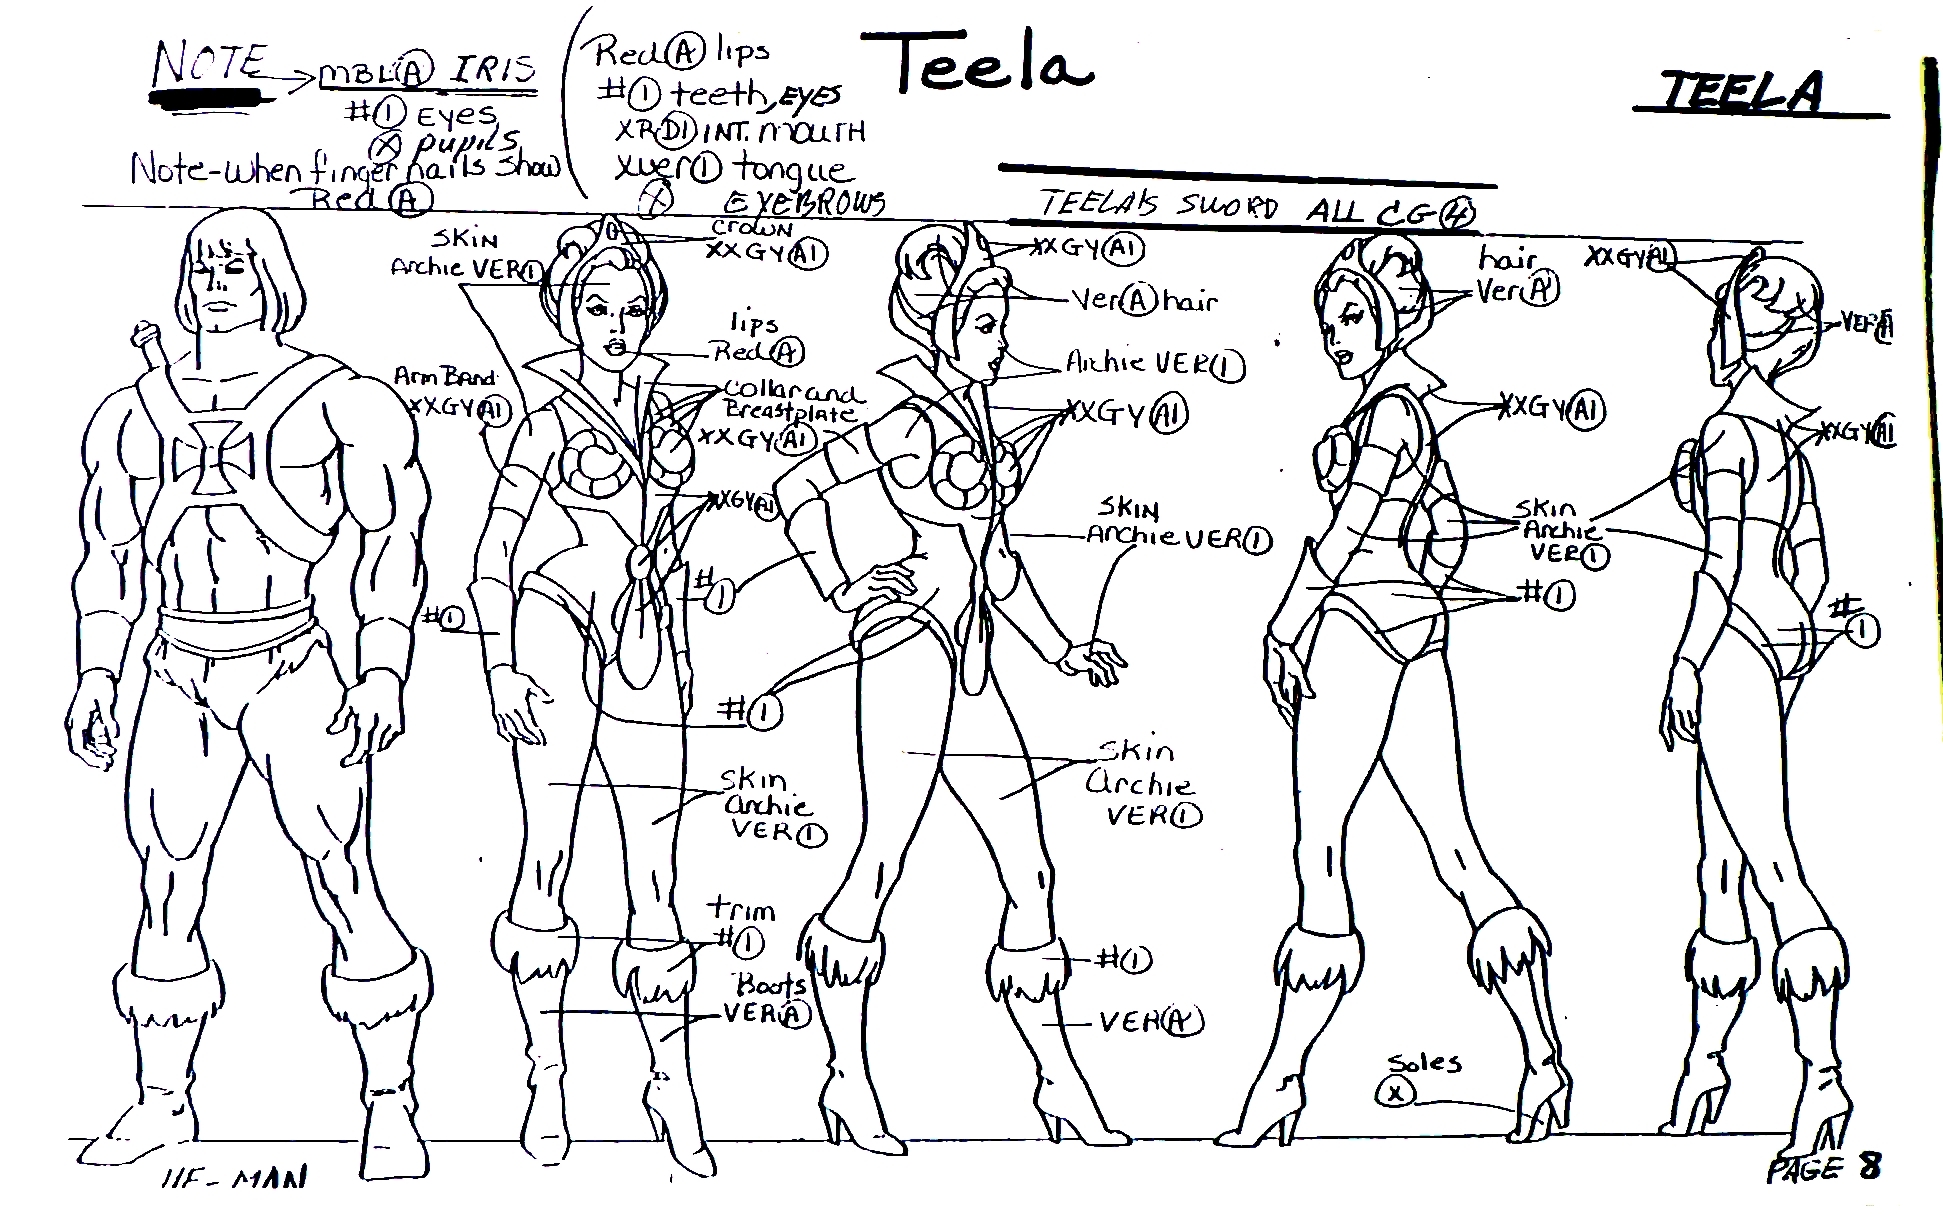 NOTE
MBL(A) IRIS
#(1) EYES
(X) pupils
Note-when finger nails show
Red (A)
Red (A) lips
#(1) teeth, EYES
XRD(1) INT. MOUTH
Xver(1) tongue
(X) EYEBROWS
Teela
TEELA
TEELA'S SWORD ALL CG(4)
SKIN
Archie VER(1)
crown
XXGY(A1)
XXGY(A1)
Ver(A) hair
hair
Ver(A)
XXGY(A1)
VER(A)
lips
Red(A)
Arm Band
XXGY(A1)
collar and
Breastplate
XXGY(A1)
Archie VER(1)
XXGY(A1)
XXGY(A1)
XXGY(A1)
XXGY(A1)
SKIN
Archie VER(1)
Skin
Archie
VER(1)
#(1)
#(1)
#(1)
#(1)
#(1)
Skin
Archie
VER(1)
Skin
Archie
VER(1)
trim
#(1)
Boots
VER(A)
#(1)
VER(A)
Soles
(X)
HE-MAN
PAGE 8